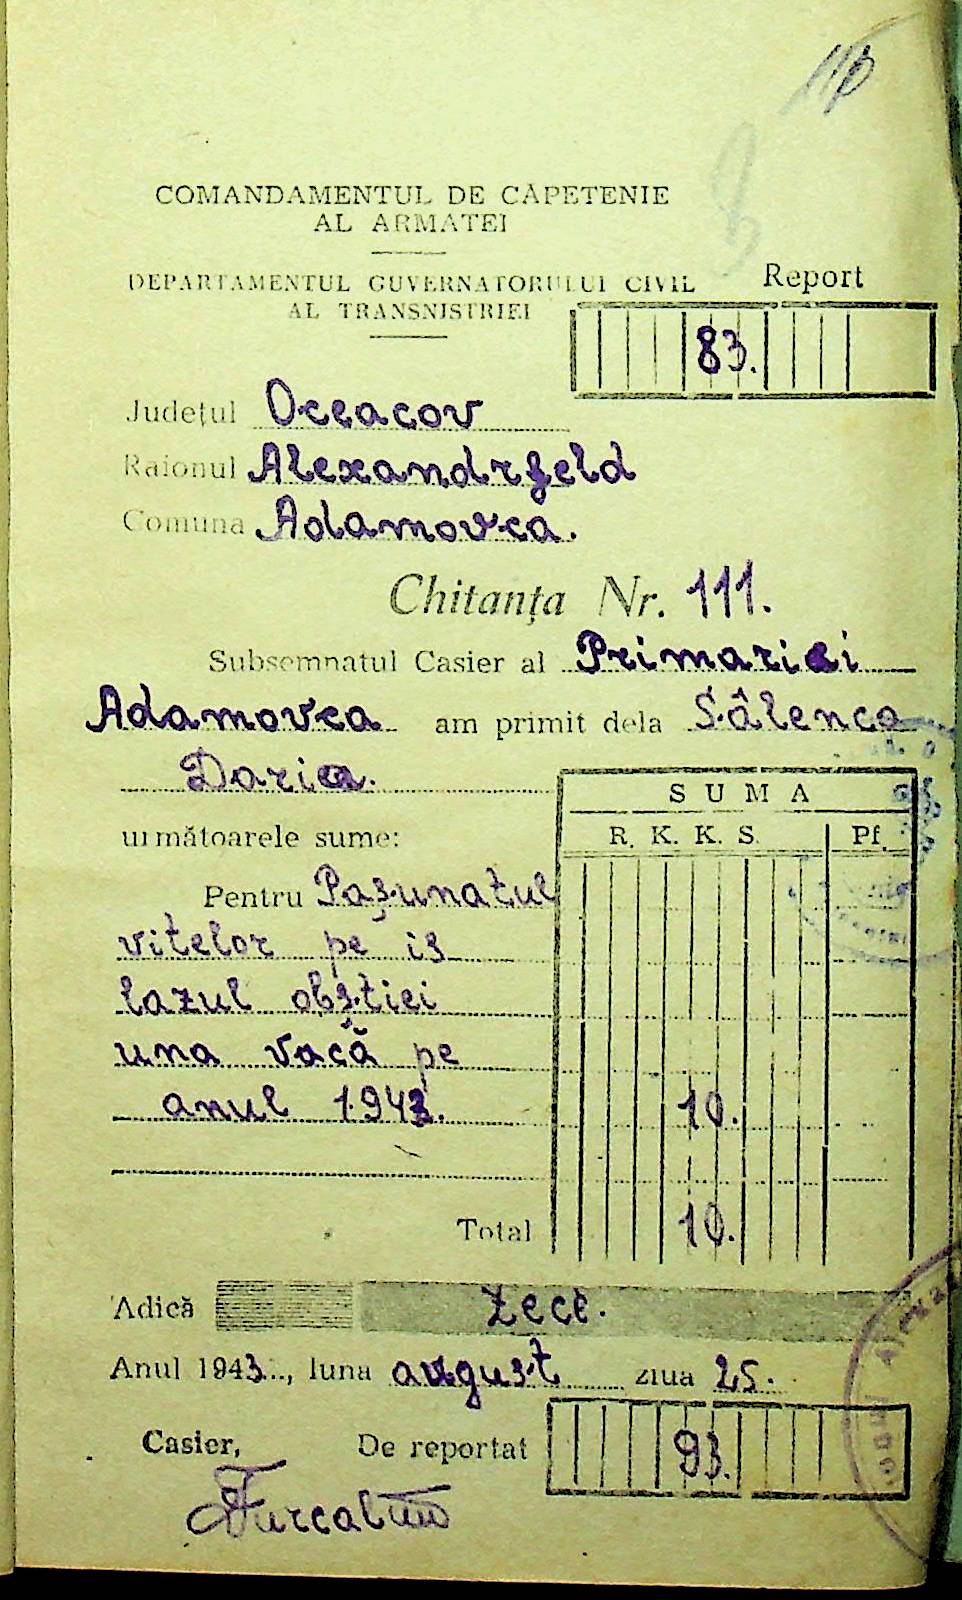 COMANDAMENTUL DE CĂPETENIE
AL ARMATEI
DEPARTAMENTUL GUVERNATORULUI CIVIL
AL TRANSNISTRIEI
Report
83.
Județul Oceacov
Raionul Alexandrfeld
Comuna Adamovca.
Chitanța Nr. 111.
Subsemnatul Casier al Primariei
Adamovca am primit dela Sâlenco
Daria.
următoarele sume:
SUMA
R. K. K. S. Pf.
Pentru Pașunatul
vitelor pe is
lazul obștiei
una vacă pe
anul 1943. 10.
Total 10.
Adică zece.
Anul 1943..., luna august ziua 25.
Casier, De reportat 93.